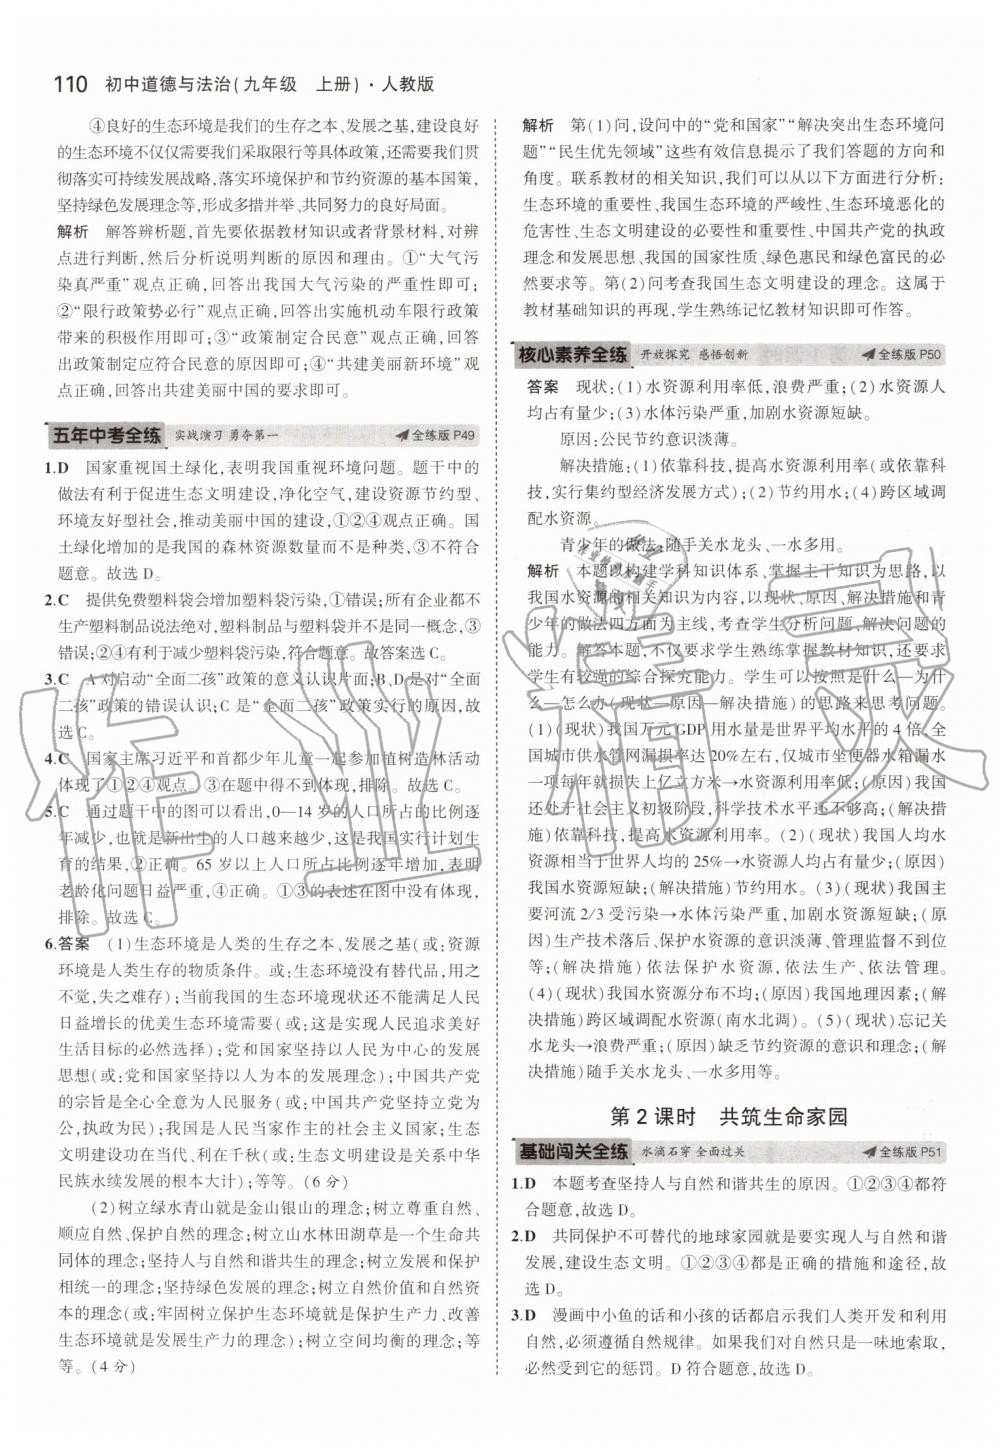 110 初中道德与法治(九年级 上册)·人教版
④良好的生态环境是我们的生存之本、发展之基,建设良好
的生态环境不仅仅需要我们采取限行等具体政策,还需要我们贯
彻落实可持续发展战略,落实环境保护和节约资源的基本国策,
坚持绿色发展理念等,形成多措并举、共同努力的良好局面。
解析 解答辨析题,首先要依据教材知识或者背景材料,对辨
点进行判断,然后分析说明判断的原因和理由。①“大气污
染真严重”观点正确,回答出我国大气污染的严重性即可;
②“限行政策势必行”观点正确,回答出实施机动车限行政策
带来的积极作用即可;③“政策制定合民意”观点正确,回答
出政策制定应符合民意的原因即可;④“共建美丽新环境”观
点正确,回答出共建美丽中国的要求即可。
五年中考全练 实战演习 勇夺第一 全练版 P49
1.D 国家重视国土绿化,表明我国重视环境问题。题干中的
做法有利于促进生态文明建设,净化空气,建设资源节约型、
环境友好型社会,推动美丽中国的建设,①②④观点正确。国
土绿化增加的是我国的森林资源数量而不是种类,③不符合
题意。故选 D。
2.C 提供免费塑料袋会增加塑料袋污染,①错误;所有企业都不
生产塑料制品说法绝对,塑料制品与塑料袋并不是同一概念,③
错误;②④有利于减少塑料袋污染,符合题意。故答案选 C。
3.C A 对启动“全面二孩”政策的意义认识片面;B、D 是对“全面
二孩”政策的错误认识;C 是“全面二孩”政策实行的原因,故
选 C。
4.C 国家主席习近平和首都少年儿童一起参加植树造林活动
体现了①②④观点。③在题中得不到体现,排除。故选 C。
5.C 通过题干中的图可以看出,0—14 岁的人口所占的比例逐
年减少,也就是新出生的人口越来越少,这是我国实行计划生
育的结果,②正确。65 岁以上人口所占比例逐年增加,表明
老龄化问题日益严重,④正确。①③的表述在图中没有体现,
排除。故选 C。
6.答案 (1)生态环境是人类的生存之本、发展之基(或:资源
环境是人类生存的物质条件。或:生态环境没有替代品,用之
不觉,失之难存);当前我国的生态环境现状还不能满足人民
日益增长的优美生态环境需要(或:这是实现人民追求美好
生活目标的必然选择);党和国家坚持以人民为中心的发展
思想(或:党和国家坚持以人为本的发展理念);中国共产党
的宗旨是全心全意为人民服务(或:中国共产党坚持立党为
公,执政为民);我国是人民当家作主的社会主义国家;生态
文明建设功在当代、利在千秋(或:生态文明建设是关系中华
民族永续发展的根本大计);等等。(6 分)
(2)树立绿水青山就是金山银山的理念;树立尊重自然、
顺应自然、保护自然的理念;树立山水林田湖草是一个生命共
同体的理念;坚持人与自然和谐共生的理念;坚持发展和保护
相统一的理念;坚持绿色发展的理念;树立自然价值和自然资
本的理念(或:牢固树立保护生态环境就是保护生产力、改善
生态环境就是发展生产力的理念);树立空间均衡的理念;等
等。(4 分)
解析 第(1)问,设问中的“党和国家”“解决突出生态环境问
题”“民生优先领域”这些有效信息提示了我们答题的方向和
角度。联系教材的相关知识,我们可以从以下方面进行分析:
生态环境的重要性、我国生态环境的严峻性、生态环境恶化的
危害性、生态文明建设的必要性和重要性、中国共产党的执政
理念和发展思想、我国的国家性质、绿色惠民和绿色富民的必
然要求等。第(2)问考查我国生态文明建设的理念。这属于
教材基础知识的再现,学生熟练记忆教材知识即可作答。
核心素养全练 开放探究 感悟创新 全练版 P50
答案 现状:(1)水资源利用率低,浪费严重;(2)水资源人
均占有量少;(3)水体污染严重,加剧水资源短缺。
原因:公民节约意识淡薄。
解决措施:(1)依靠科技,提高水资源利用率(或依靠科
技,实行集约型经济发展方式);(2)节约用水;(4)跨区域调
配水资源。
青少年的做法:随手关水龙头、一水多用。
解析 本题以构建学科知识体系、掌握主干知识为思路,以
我国水资源的相关知识为内容,以现状、原因、解决措施和青
少年的做法四方面为主线,考查学生分析问题、解决问题的
能力。解答本题,不仅要求学生熟练掌握教材知识,还要求
学生有较强的综合探究能力。学生可以按照是什么—为什
么—怎么办(现状—原因—解决措施)的思路来思考问题。
(1)(现状)我国万元 GDP 用水量是世界平均水平的 4 倍,全
国城市供水管网漏损率达 20%左右,仅城市坐便器水箱漏水
一项每年就损失上亿立方米→水资源利用率低;(原因)我国
还处于社会主义初级阶段,科学技术水平还不够高;(解决措
施)依靠科技,提高水资源利用率。(2)(现状)我国人均水
资源相当于世界人均的 25%→水资源人均占有量少;(原因)
我国水资源短缺;(解决措施)节约用水。(3)(现状)我国主
要河流 2/3 受污染→水体污染严重,加剧水资源短缺;(原
因)生产技术落后、保护水资源的意识淡薄、管理监督不到位
等;(解决措施)依法保护水资源,依法生产、依法管理。
(4)(现状)我国水资源分布不均;(原因)我国地理因素;(解
决措施)跨区域调配水资源(南水北调)。(5)(现状)忘记关
水龙头→浪费严重;(原因)缺乏节约资源的意识和理念;(解
决措施)随手关水龙头、一水多用等。
第 2 课时 共筑生命家园
基础闯关全练 水滴石穿 全面过关 全练版 P51
1.D 本题考查坚持人与自然和谐共生的原因。①②③④都符
合题意,故选 D。
2.D 共同保护不可替代的地球家园就是要实现人与自然和谐
发展,建设生态文明。①②③④都是正确的措施和途径,故
选 D。
3.D 漫画中小鱼的话和小孩的话都启示我们人类开发和利用
自然,必须遵循自然规律。如果我们对自然只是一味地索取,
必然受到它的惩罚。D 符合题意,故选 D。
作业精灵